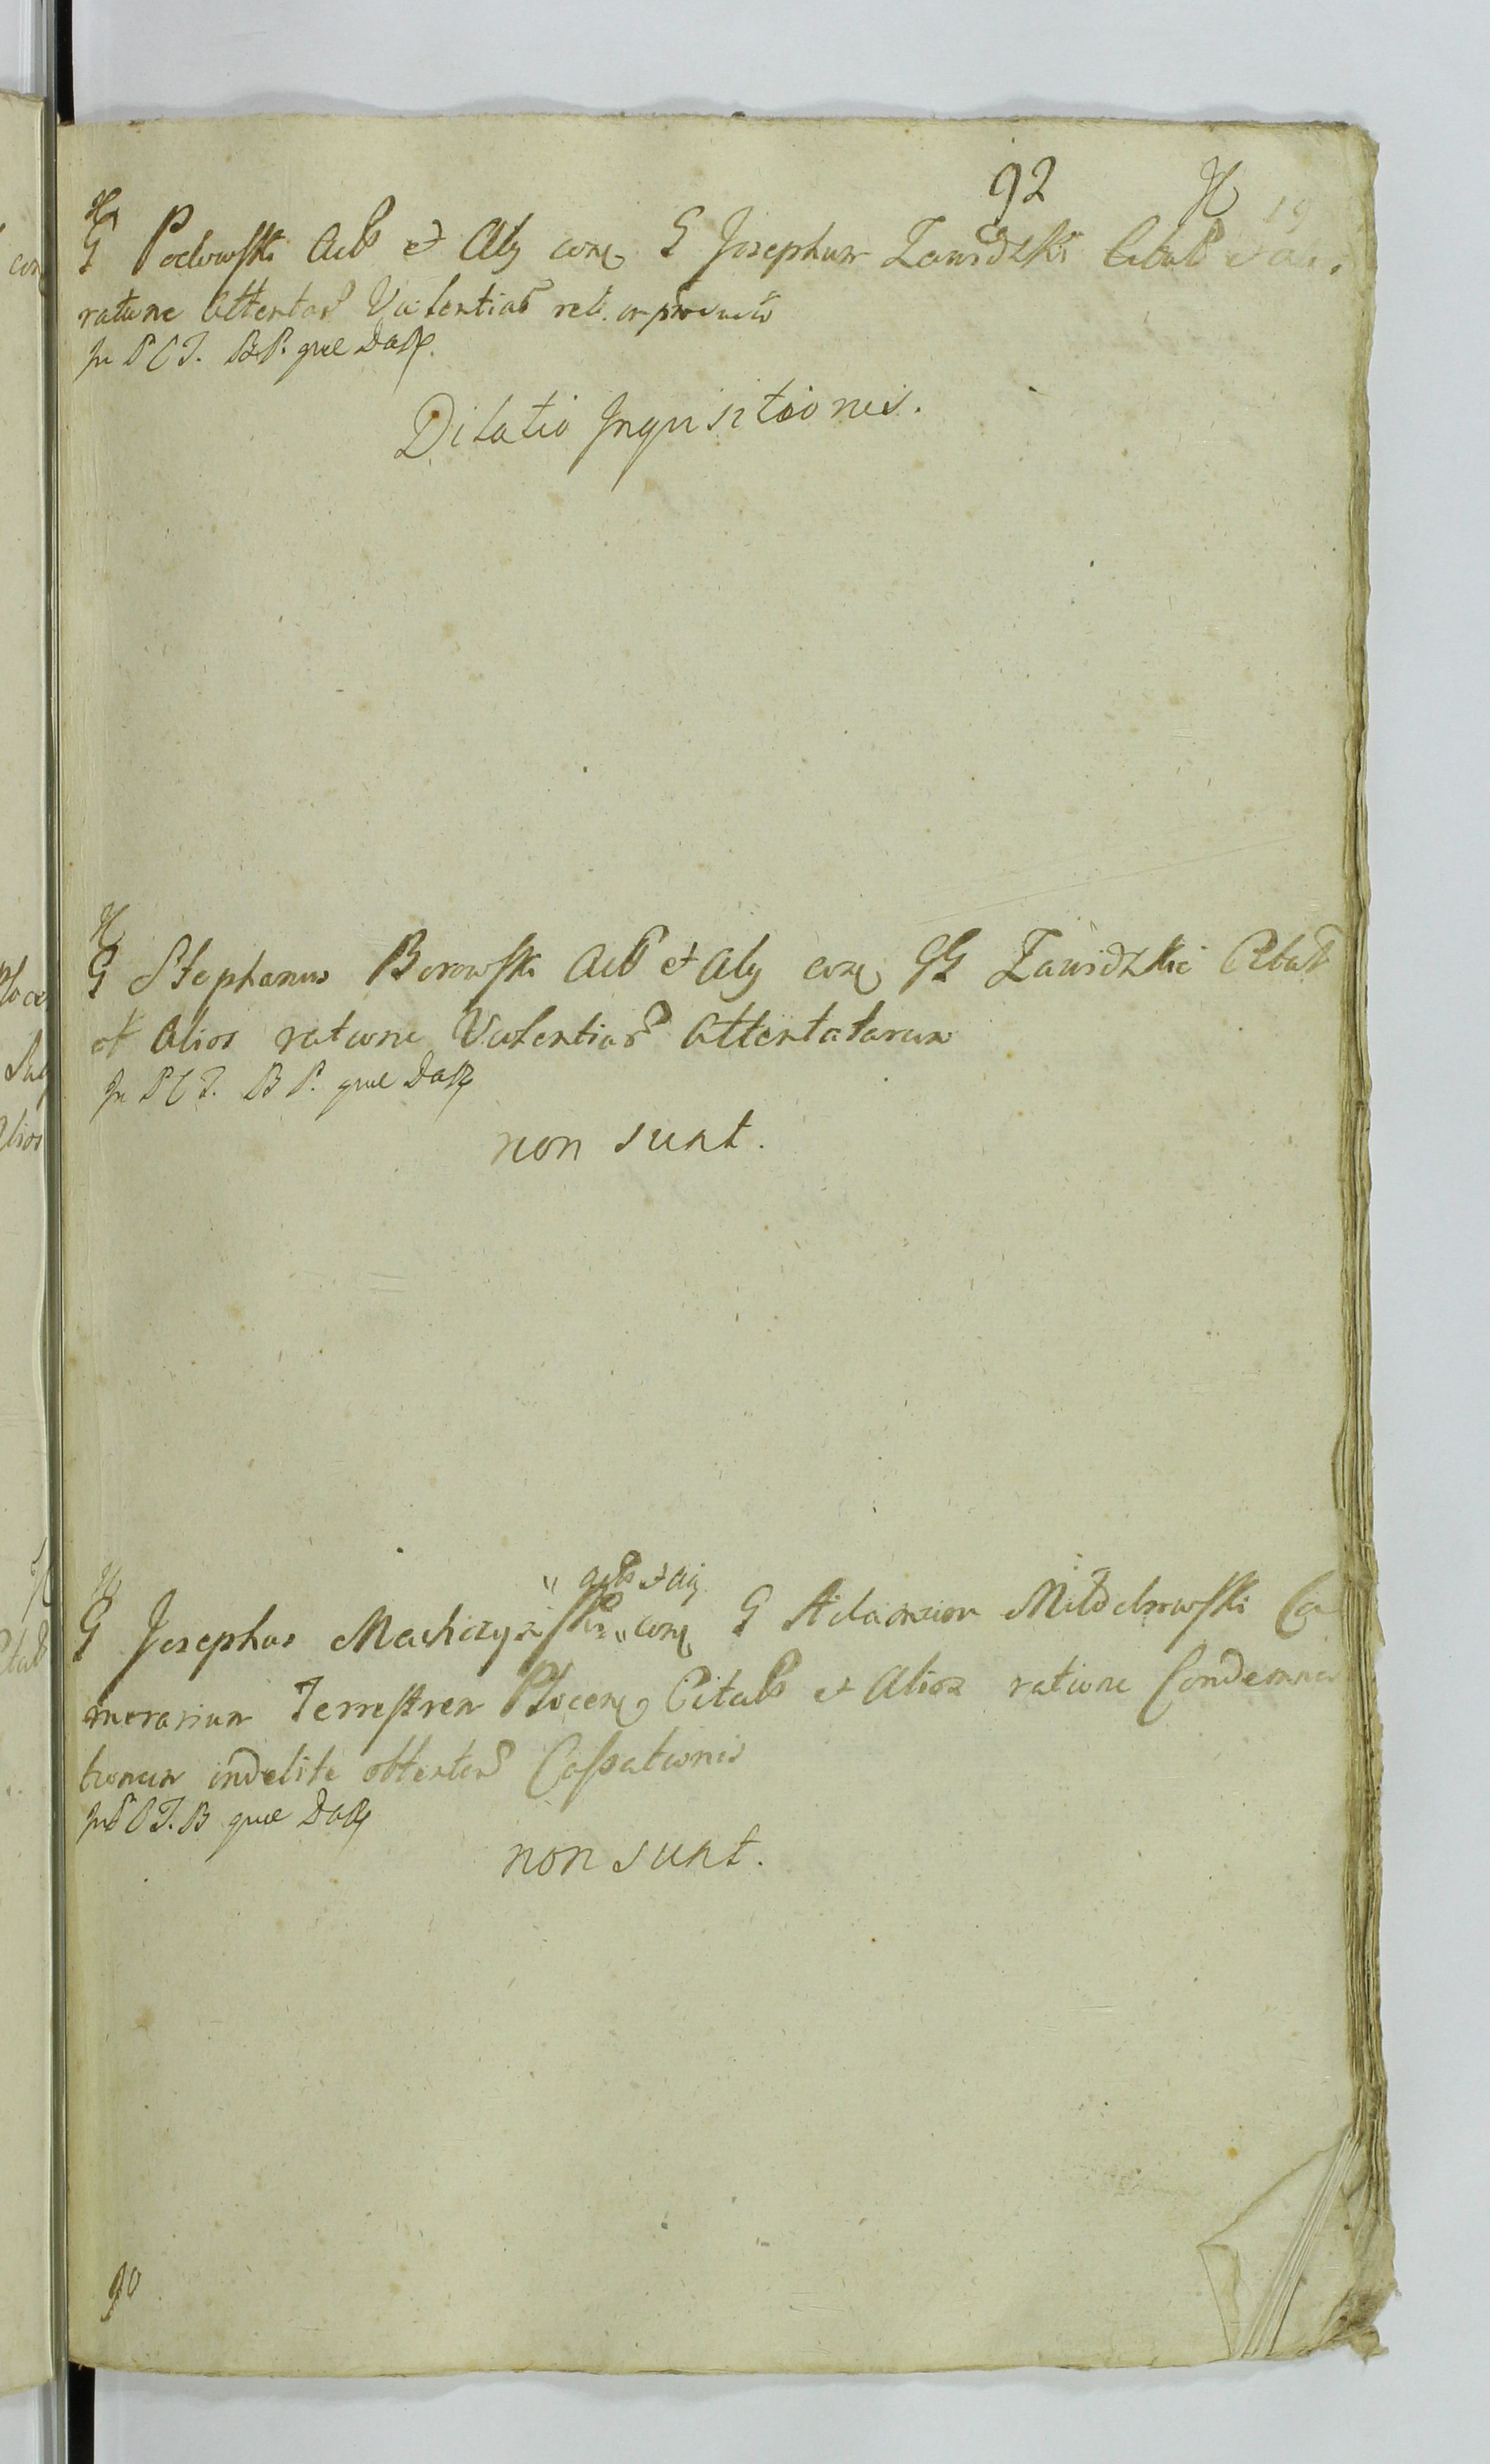 92
G Podowski Actor et Alij conq G Josephum Zawidzki Citat
ratione Attentar Violentiar
In P C T. B P. quæ Dasq
Dilatio Inquisitionis.
G Stephanus Borowski Actor et Alij conq GG Zawidzkie Citat
et Alios ratione Violentiar Attentatarum
In P C T. B P. quæ Dasq
non sunt.
" Actor et Alij
G Josephus Machczyński " conq G Adamum Mildebrowski Ca
merarium Terrestrem Plocen Citat et Alios ratione Condemna
tionum indebite obtentar Cassationis
In P C T. B quæ Dasq
non sunt.
90